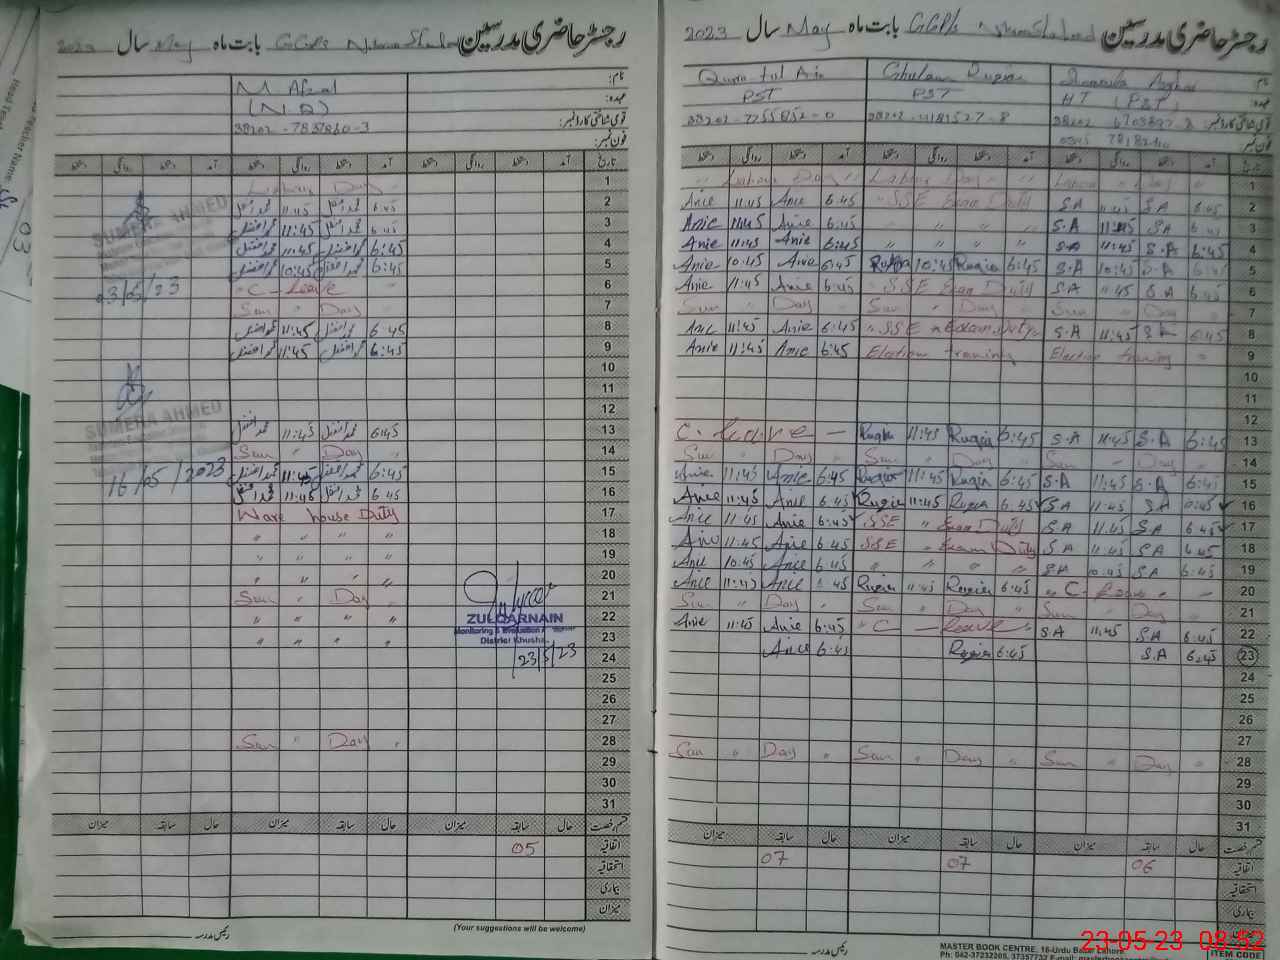 رجسٹر حاضری مدرسین GGPS بابت ماہ May سال 2023
نام: M Afzal
عہدہ: (N.Q)
قومی شناختی کارڈ نمبر:
فون نمبر:
تاریخ آمد دستخط روانگی دستخط آمد دستخط روانگی دستخط آمد دستخط روانگی دستخط
1 Labour Day
2 6:45 محمد افضل 11:45 محمد افضل
3 6:45 محمد افضل 11:45 محمد افضل
4 6:45 محمد افضل 11:45 محمد افضل
5 6:45 محمد افضل 10:45 محمد افضل
6 C-Leave
7 Sun " Day "
8 6:45 محمد افضل 11:45 محمد افضل
9 6:45 محمد افضل 11:45 محمد افضل
10
11
12
13 6:45 محمد افضل 11:45 محمد افضل
14 Sun " Day
15 6:45 محمد افضل 11:45 محمد افضل
16 6:45 محمد افضل 11:45 محمد افضل
17 Ware house Duty
18 " " " "
19 " " " "
20 " " " "
21 Sun " Day "
22 " " " "
23 " " " "
24
25
26
27
28 Sun " Day "
29
30
31
SUMERA AHMED
03/5/23
SUMERA AHMED
16/05/2023
ZULQARNAIN
Monitoring & Evaluation
District Khushab
23/5/23
قسم رخصت حال سابقہ میزان حال سابقہ میزان حال سابقہ میزان
اتفاقیہ 05
استحقاقیہ
بیماری
میزان
رئیس مدرسہ
(Your suggestions will be welcome)
رجسٹر حاضری مدرسین GGPS بابت ماہ May سال 2023
نام Qurat ul Ain Ghulam Ruqia
عہدہ PST PST HT (PST)
قومی شناختی کارڈ نمبر:
فون نمبر:
تاریخ آمد دستخط روانگی دستخط آمد دستخط روانگی دستخط آمد دستخط روانگی دستخط
" Labour Day " Labour Day " " Labour " Day " 1
Anie 11:45 Anie 6:45 " SSE Exam Duty S.A 11:45 S.A 6:45 2
Anie 11:45 Anie 6:45 " " " " S.A 11:45 S.A 6:45 3
Anie 11:45 Anie 6:45 " " " " S.A 11:45 S.A 6:45 4
Anie 10:45 Anie 6:45 Ruqia 10:45 Ruqia 6:45 S.A 10:45 S.A 6:45 5
Anie 11:45 Anie 6:45 " SSE Exam Duty S.A 11:45 S.A 6:45 6
Sun " Day " Sun " Day " Sun " Day " 7
Anie 11:45 Anie 6:45 " SSE " Exam Duty " S.A 11:45 S.A 6:45 8
Anie 11:45 Anie 6:45 Election training Election training " 9
10
11
12
C. Leave — Ruqia 11:45 Ruqia 6:45 S.A 11:45 S.A 6:45 13
Sun " Day " Sun " Day " Sun " Day " 14
Anie 11:45 Anie 6:45 Ruqia 11:45 Ruqia 6:45 S.A 11:45 S.A 6:45 15
Anie 11:45 Anie 6:45 Ruqia 11:45 Ruqia 6:45 S.A 11:45 S.A 6:45 16
Anie 11:45 Anie 6:45 SSE " Exam Duty S.A 11:45 S.A 6:45 17
Anie 11:45 Anie 6:45 SSE " Exam Duty S.A 11:45 S.A 6:45 18
Anie 10:45 Anie 6:45 " " " " S.A 10:45 S.A 6:45 19
Anie 11:45 Anie 6:45 Ruqia 11:45 Ruqia 6:45 " C. Leave " 20
Sun " Day " Sun " Day " Sun " Day " 21
Anie 11:45 Anie 6:45 " C Leave " S.A 11:45 S.A 6:45 22
Anie 6:45 Ruqia 6:45 S.A 6:45 23
24
25
26
27
Sun " Day " Sun " Day " Sun " Day " 28
29
30
31
قسم رخصت حال سابقہ میزان حال سابقہ میزان حال سابقہ میزان
اتفاقیہ 06 07 07
استحقاقیہ
بیماری
رئیس مدرسہ
MASTER BOOK CENTRE, 16-Urdu Bazar Lahore.
Ph: 042-37232265, 37357732 E-mail:
ITEM CODE
23-05-23 08:52